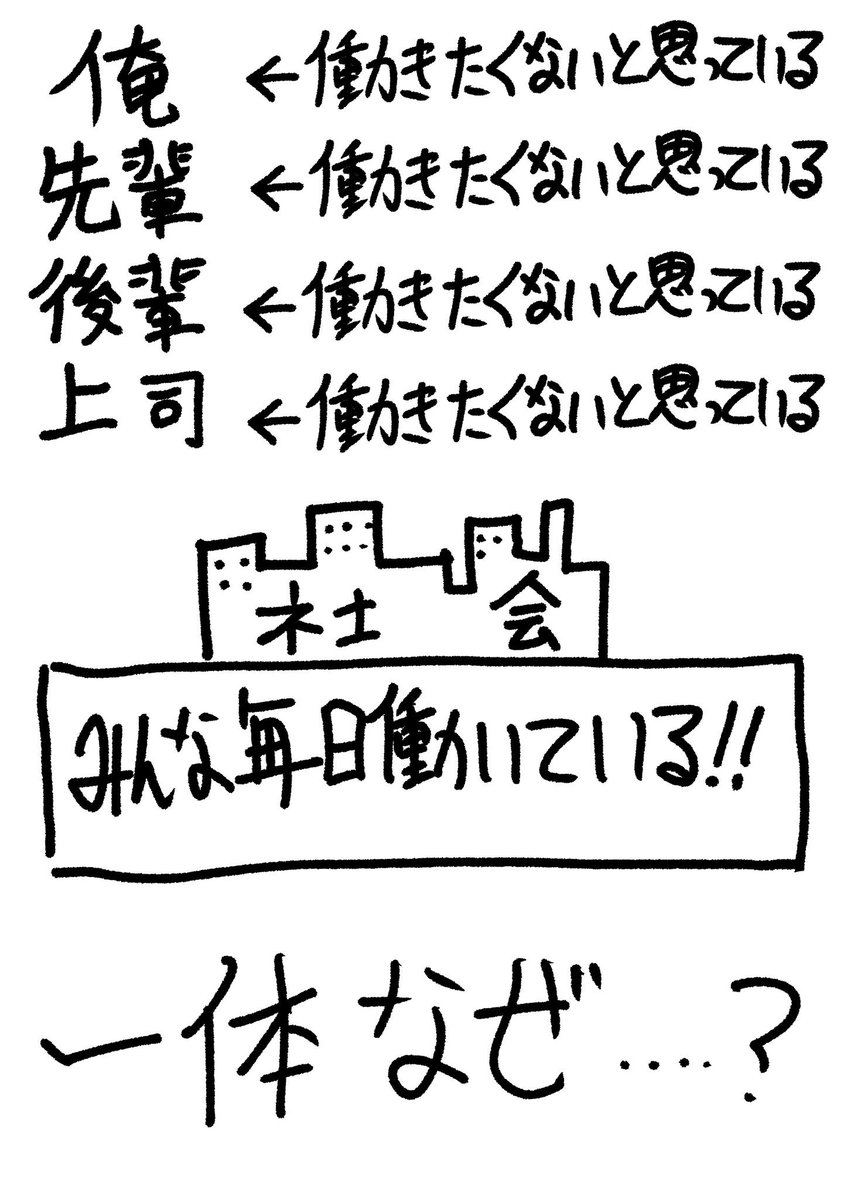 俺 ←働きたくないと思っている
先輩 ←働きたくないと思っている
後輩 ←働きたくないと思っている
上司 ←働きたくないと思っている
社会
みんな毎日働いている!!
一体なぜ....?